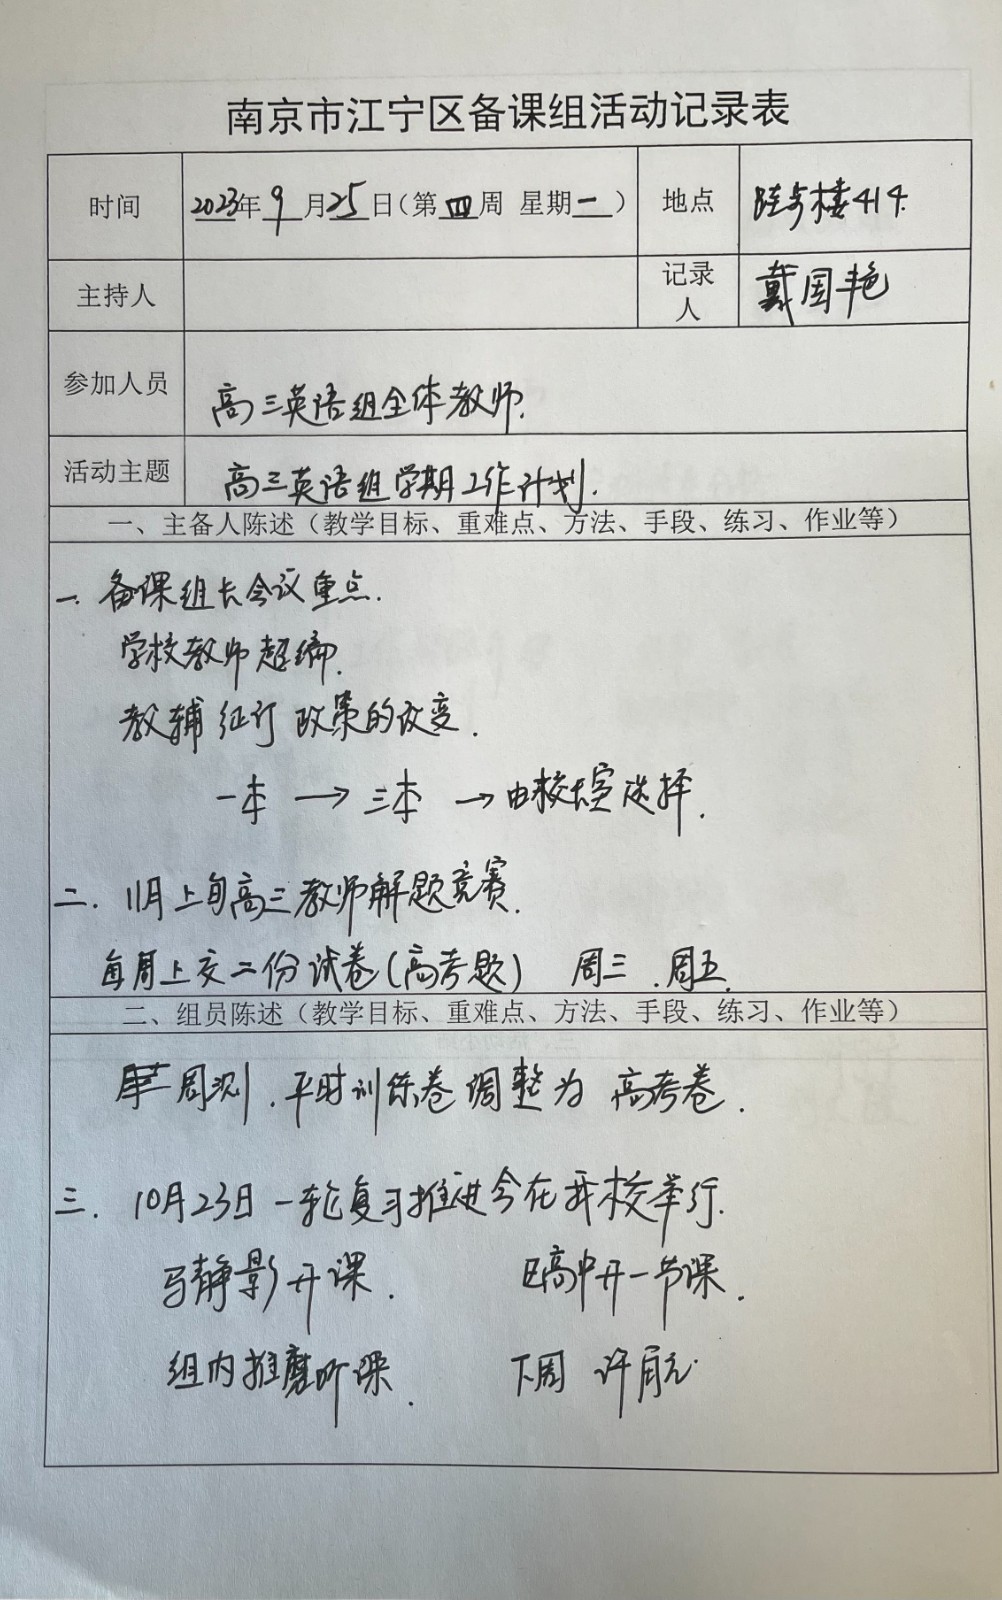 南京市江宁区备课组活动记录表
时间 2023年9月25日(第四周 星期一) 地点 楼414.
主持人 记录人 戴国艳
参加人员 高三英语组全体教师.
活动主题 高三英语组学期工作计划.
一、主备人陈述(教学目标、重难点、方法、手段、练习、作业等)
一. 备课组长会议重点.
学校教师超编.
教辅征订政策的改变.
一本 → 三本 → 由校长室选择.
二. 11月上旬高三教师解题竞赛.
每周上交二份试卷(高考题) 周三.周五.
二、组员陈述(教学目标、重难点、方法、手段、练习、作业等)
周测.平时训练卷调整为 高考卷.
三. 10月23日一轮复习推进会在我校举行.
马静影开课. 区高中开一节课.
组内推磨听课. 下周 许